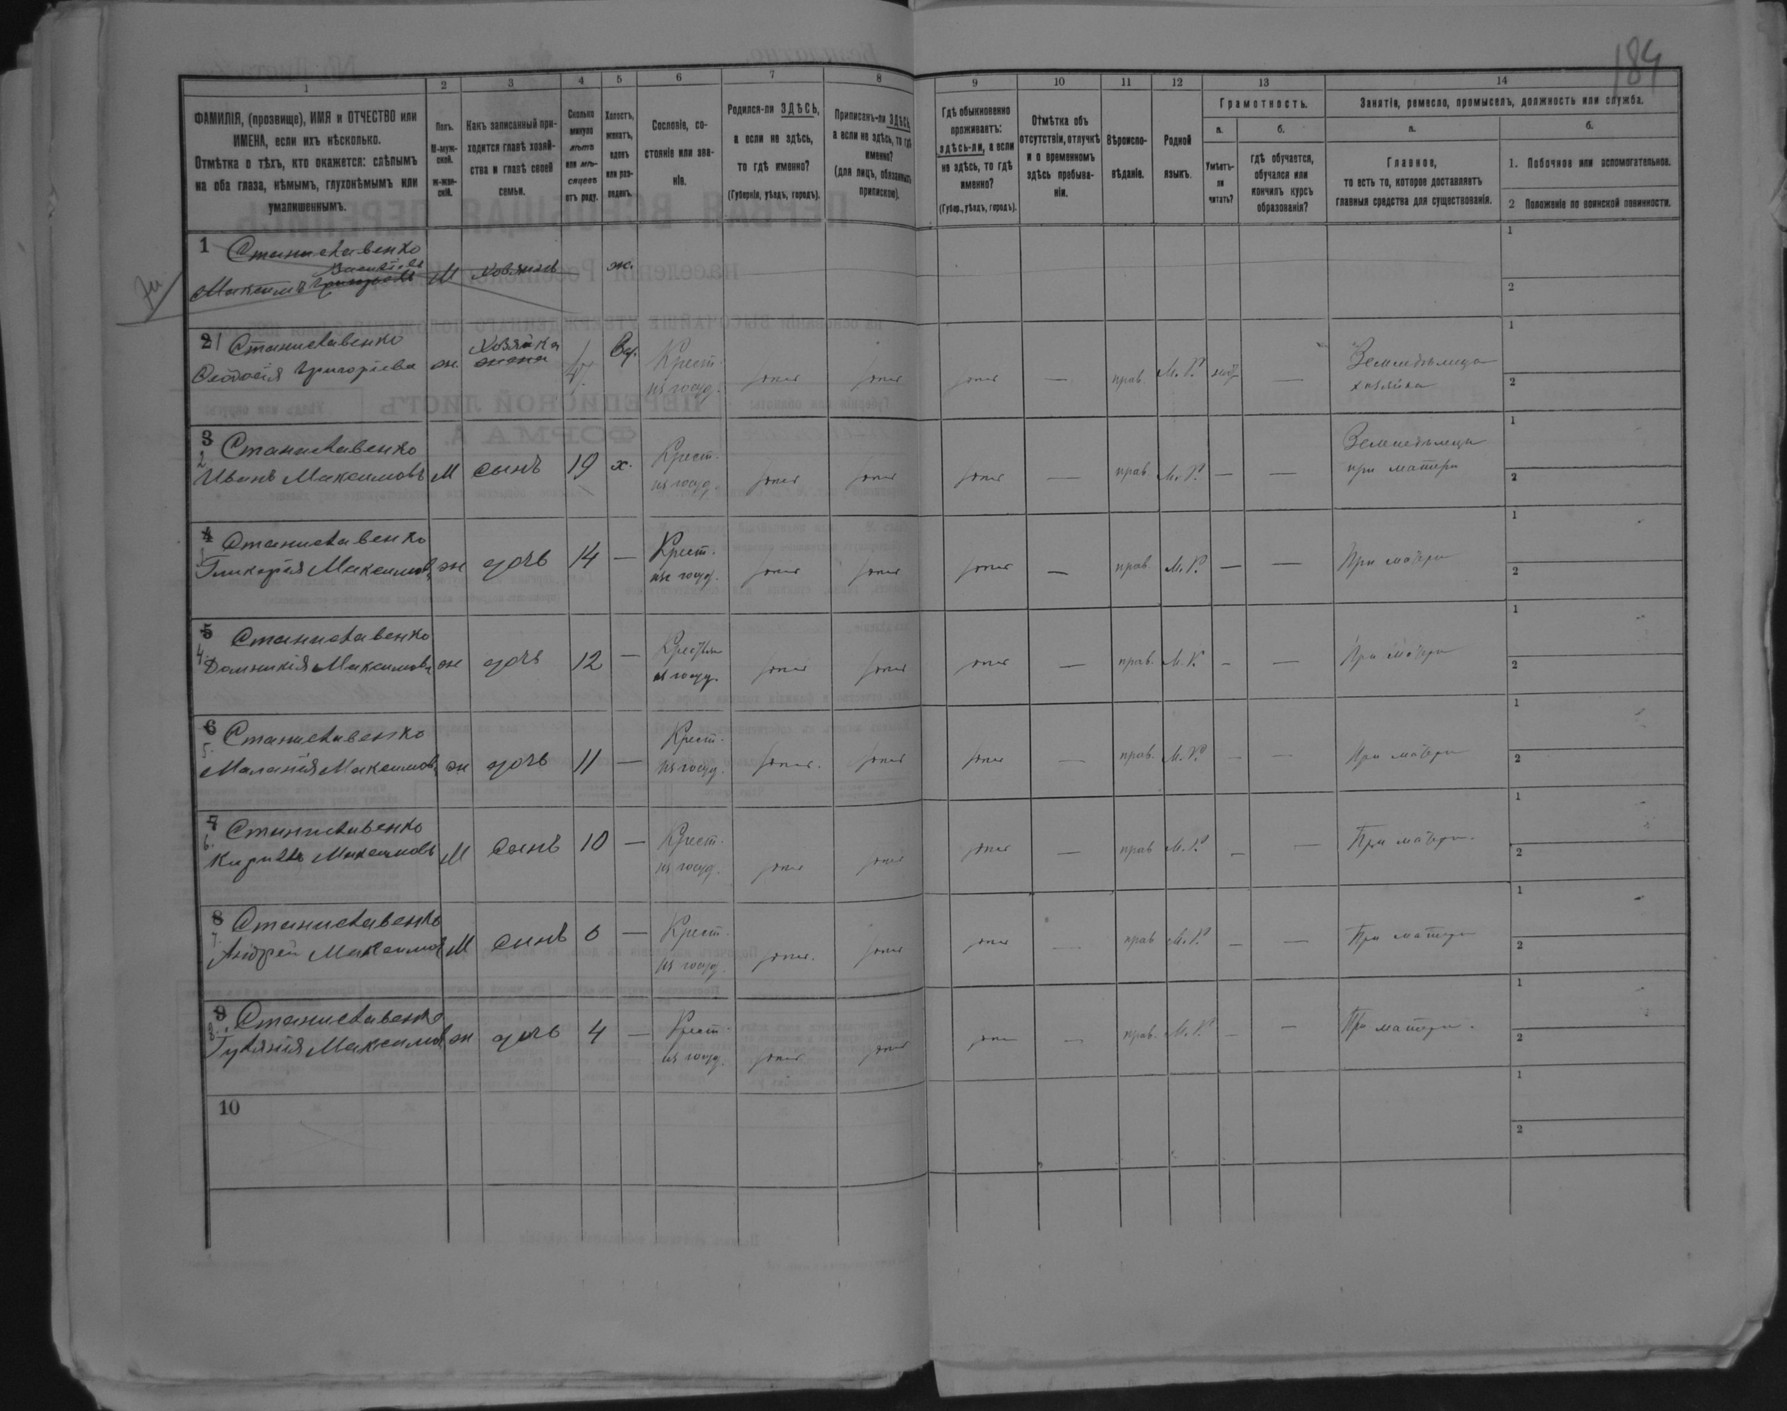 184
1 2 3 4 5 6 7 8 9 10 11 12 13 14
ФАМИЛІЯ, (прозвище), ИМЯ и ОТЧЕСТВО или
ИМЕНА, если ихъ нѣсколько.
Отмѣтка о тѣхъ, кто окажется: слѣпымъ
на оба глаза, нѣмымъ, глухонѣмымъ или
умалишеннымъ.
Полъ.
М-муж-
ской.
Ж-жен-
скій.
Какъ записанный при-
ходится главѣ хозяй-
ства и главѣ своей
семьи.
Сколько
минуло
лѣтъ
или мѣ-
сяцевъ
отъ роду.
Холостъ,
женатъ,
вдовъ
или раз-
веденъ.
Сословіе, со-
стояніе или зва-
ніе.
Родился-ли ЗДѢСЬ,
а если не здѣсь,
то гдѣ именно?
(Губернія, уѣздъ, городъ).
Приписанъ-ли ЗДѢСЬ,
а если не здѣсь, то гдѣ
именно?
(для лицъ, обязанныхъ
припискою).
Гдѣ обыкновенно
проживаетъ:
здѣсь-ли, а если
не здѣсь, то гдѣ
именно?
(Губер., уѣздъ, городъ).
Отмѣтка объ
отсутствіи, отлучкѣ
и о временномъ
здѣсь пребыва-
ніи.
Вѣроиспо-
вѣданіе.
Родной
языкъ.
Грамотность.
а.
Умѣетъ-
ли
читать?
б.
гдѣ обучается,
обучался или
кончилъ курсъ
образованія?
Занятія, ремесло, промыселъ, должность или служба.
а.
Главное,
то есть то, которое доставляетъ
главныя средства для существованія.
б.
1. Побочное или вспомогательное.
2 Положеніе по воинской повинности.
1 Станиславенко
Максимъ М хозяинъ ж.
1
2
2 1 Станиславенко хозяйка вд. Крест. Земледѣлица
Ѳеодосія Григорієва ж жена изъ госуд. — прав. М.Р. — хозяйка
1
2
3 2 Станиславенко Крест. Земледѣлецъ
Иванъ Максимовъ М сынъ 19 х. изъ госуд. — прав М.Р — — при матери
1
2
4 3 Станиславенко Крест.
Гликерія Максимова ж дочь 14 — изъ госуд. — прав М.Р. — — При матери
1
2
5 4. Станиславенко
Домникія Максимова ж дочь 12 — изъ госуд. — прав. М.Р. — — При матери
1
2
6 5. Станиславенко Крест.
Маланія Максимова ж дочь 11 — изъ госуд. — прав. М.Р. — — При матери
1
2
7 6. Станиславенко Крест.
Кирилъ Максимовъ М сынъ 10 — изъ госуд. — прав М.Р. — — При матери
1
2
8 7. Станиславенко Крест.
Андрей Максимовъ М сынъ 6 — изъ госуд. — прав М.Р. — — При матери
1
2
9 8. Станиславенко Крест.
Максимова ж дочь 4 — изъ госуд. — прав. М.Р. — — При матери.
1
2
10
1
2